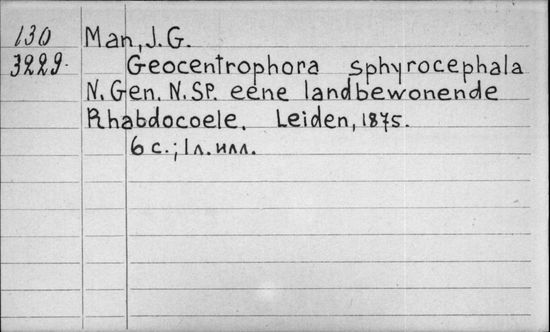 130 Man, J.G.
3229. Geocentrophora sphyrocephala
N. Gen. N. SP. eene landbewonende
Rhabdocoele. Leiden, 1875.
6 с.; 1 л. илл.